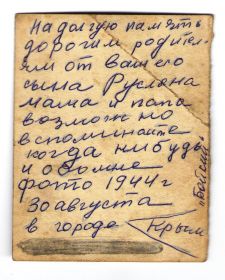 На долгую память
дорогим родител-
ям от вашего
сына Руслана
мама и папа
возможно
вспоминаите
когда нибудь
и обомне
фото 1944 г
30 августа
в городе Крым